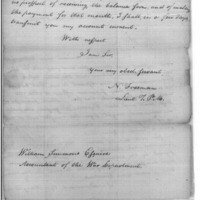 no prospect of receiving the balance from and of making
the payment for that months, I shall, in a few days
transmit you my account current.
With respect
I am Sir
your very obed. servant
N. Freeman
William Simmons Esquire
Accountant of the War Department